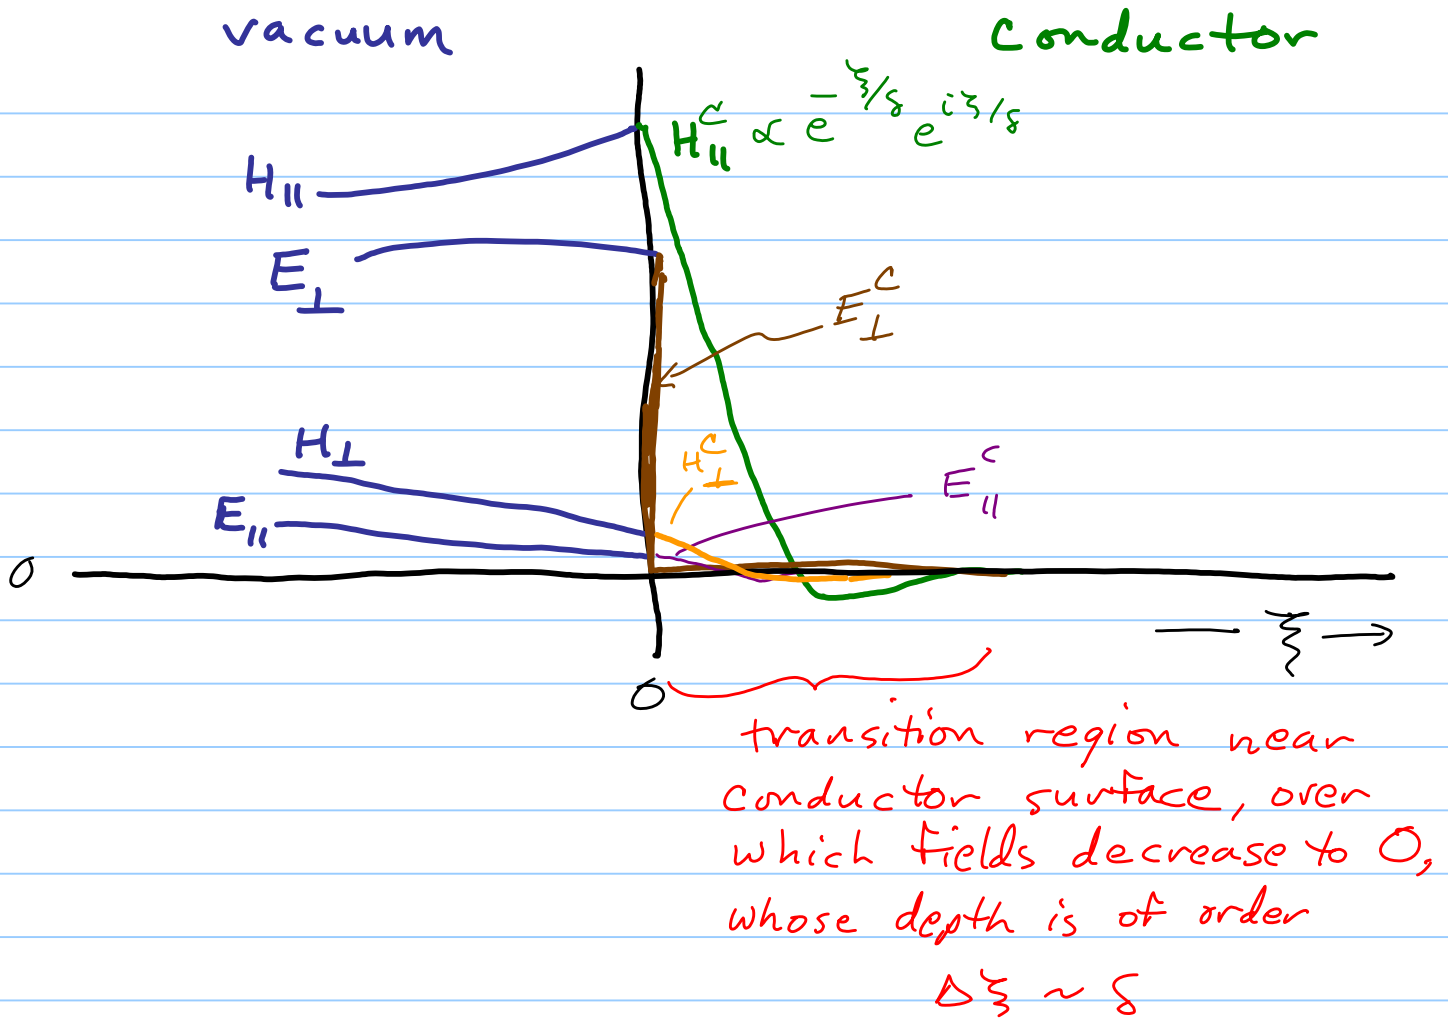 vacuum
Conductor
H_∥^C ∝ e^{-ξ/δ} e^{iξ/δ}
H_∥
E_⊥
E_⊥^C
H_⊥
H_⊥^C
E_∥^C
E_∥
0
— ξ →
0
transition region near
conductor surface, over
which fields decrease to 0,
whose depth is of order
Δξ ~ δ